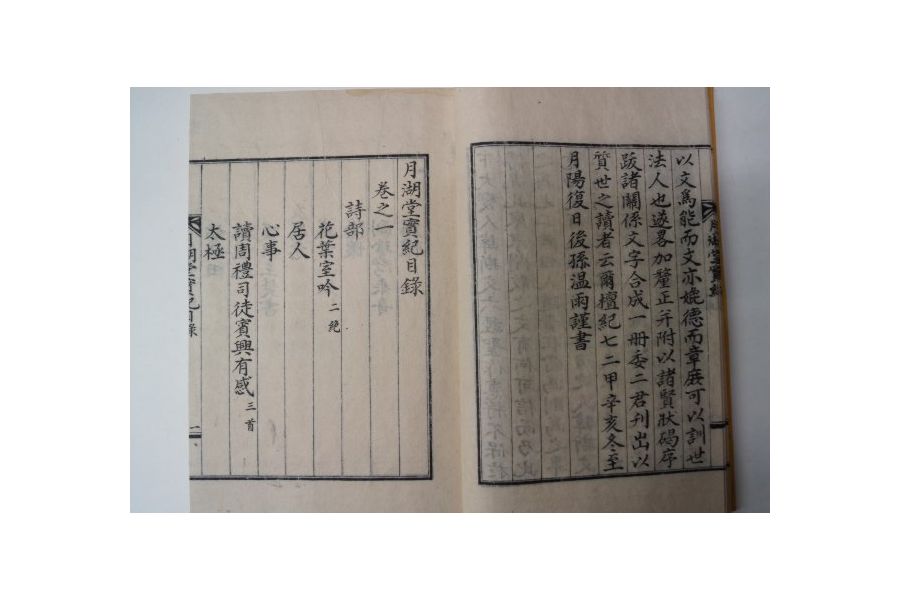 以文爲能而文亦媲德而章展可以訓世
法人也遂畧加釐正并附以諸賢狀碣序
跋諸關係文字合成一冊委二君刊出以
質世之讀者云爾檀紀七二甲辛亥冬至
月陽復日後孫溫雨謹書
月湖堂實紀
月湖堂實紀目錄
卷之一
詩部
花葉室吟 二絶
居人
心事
讀周禮司徒賓興有感 三首
太極
月湖堂實紀目錄
一